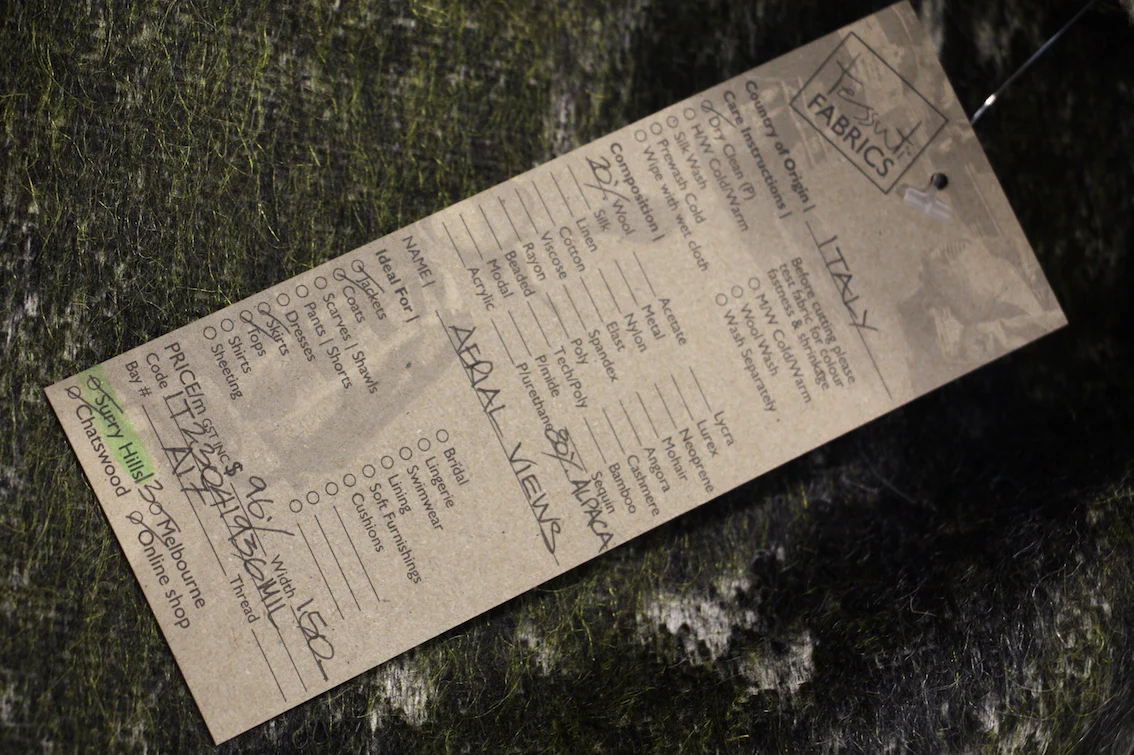 tessuti
FABRICS
Country of Origin | ITALY
Care Instructions | Before cutting please
test fabric for colour
fastness & shrinkage
Dry Clean (P)
H/W Cold/Warm
Silk Wash
Prewash Cold
Wipe with wet cloth
M/W Cold/Warm
Wool Wash
Wash Separately
Composition |
20% Wool
Silk
Linen
Cotton
Viscose
Rayon
Beaded
Modal
Acrylic
Acetate
Metal
Nylon
Elast
Spandex
Poly
Tech/Poly
P/mide
P/urethane
Lycra
Lurex
Neoprene
Mohair
Angora
Cashmere
Bamboo
Sequin
80% ALPACA
NAME | AERIAL VIEWS
Ideal For |
Jackets
Coats
Scarves | Shawls
Pants | Shorts
Dresses
Skirts
Tops
Shirts
Sheeting
Bridal
Lingerie
Swimwear
Lining
Soft Furnishings
Cushions
PRICE/m GST INC $ 96./ Width 150
Code
Bay # Thread
Surry Hills
Chatswood
Melbourne
Online shop